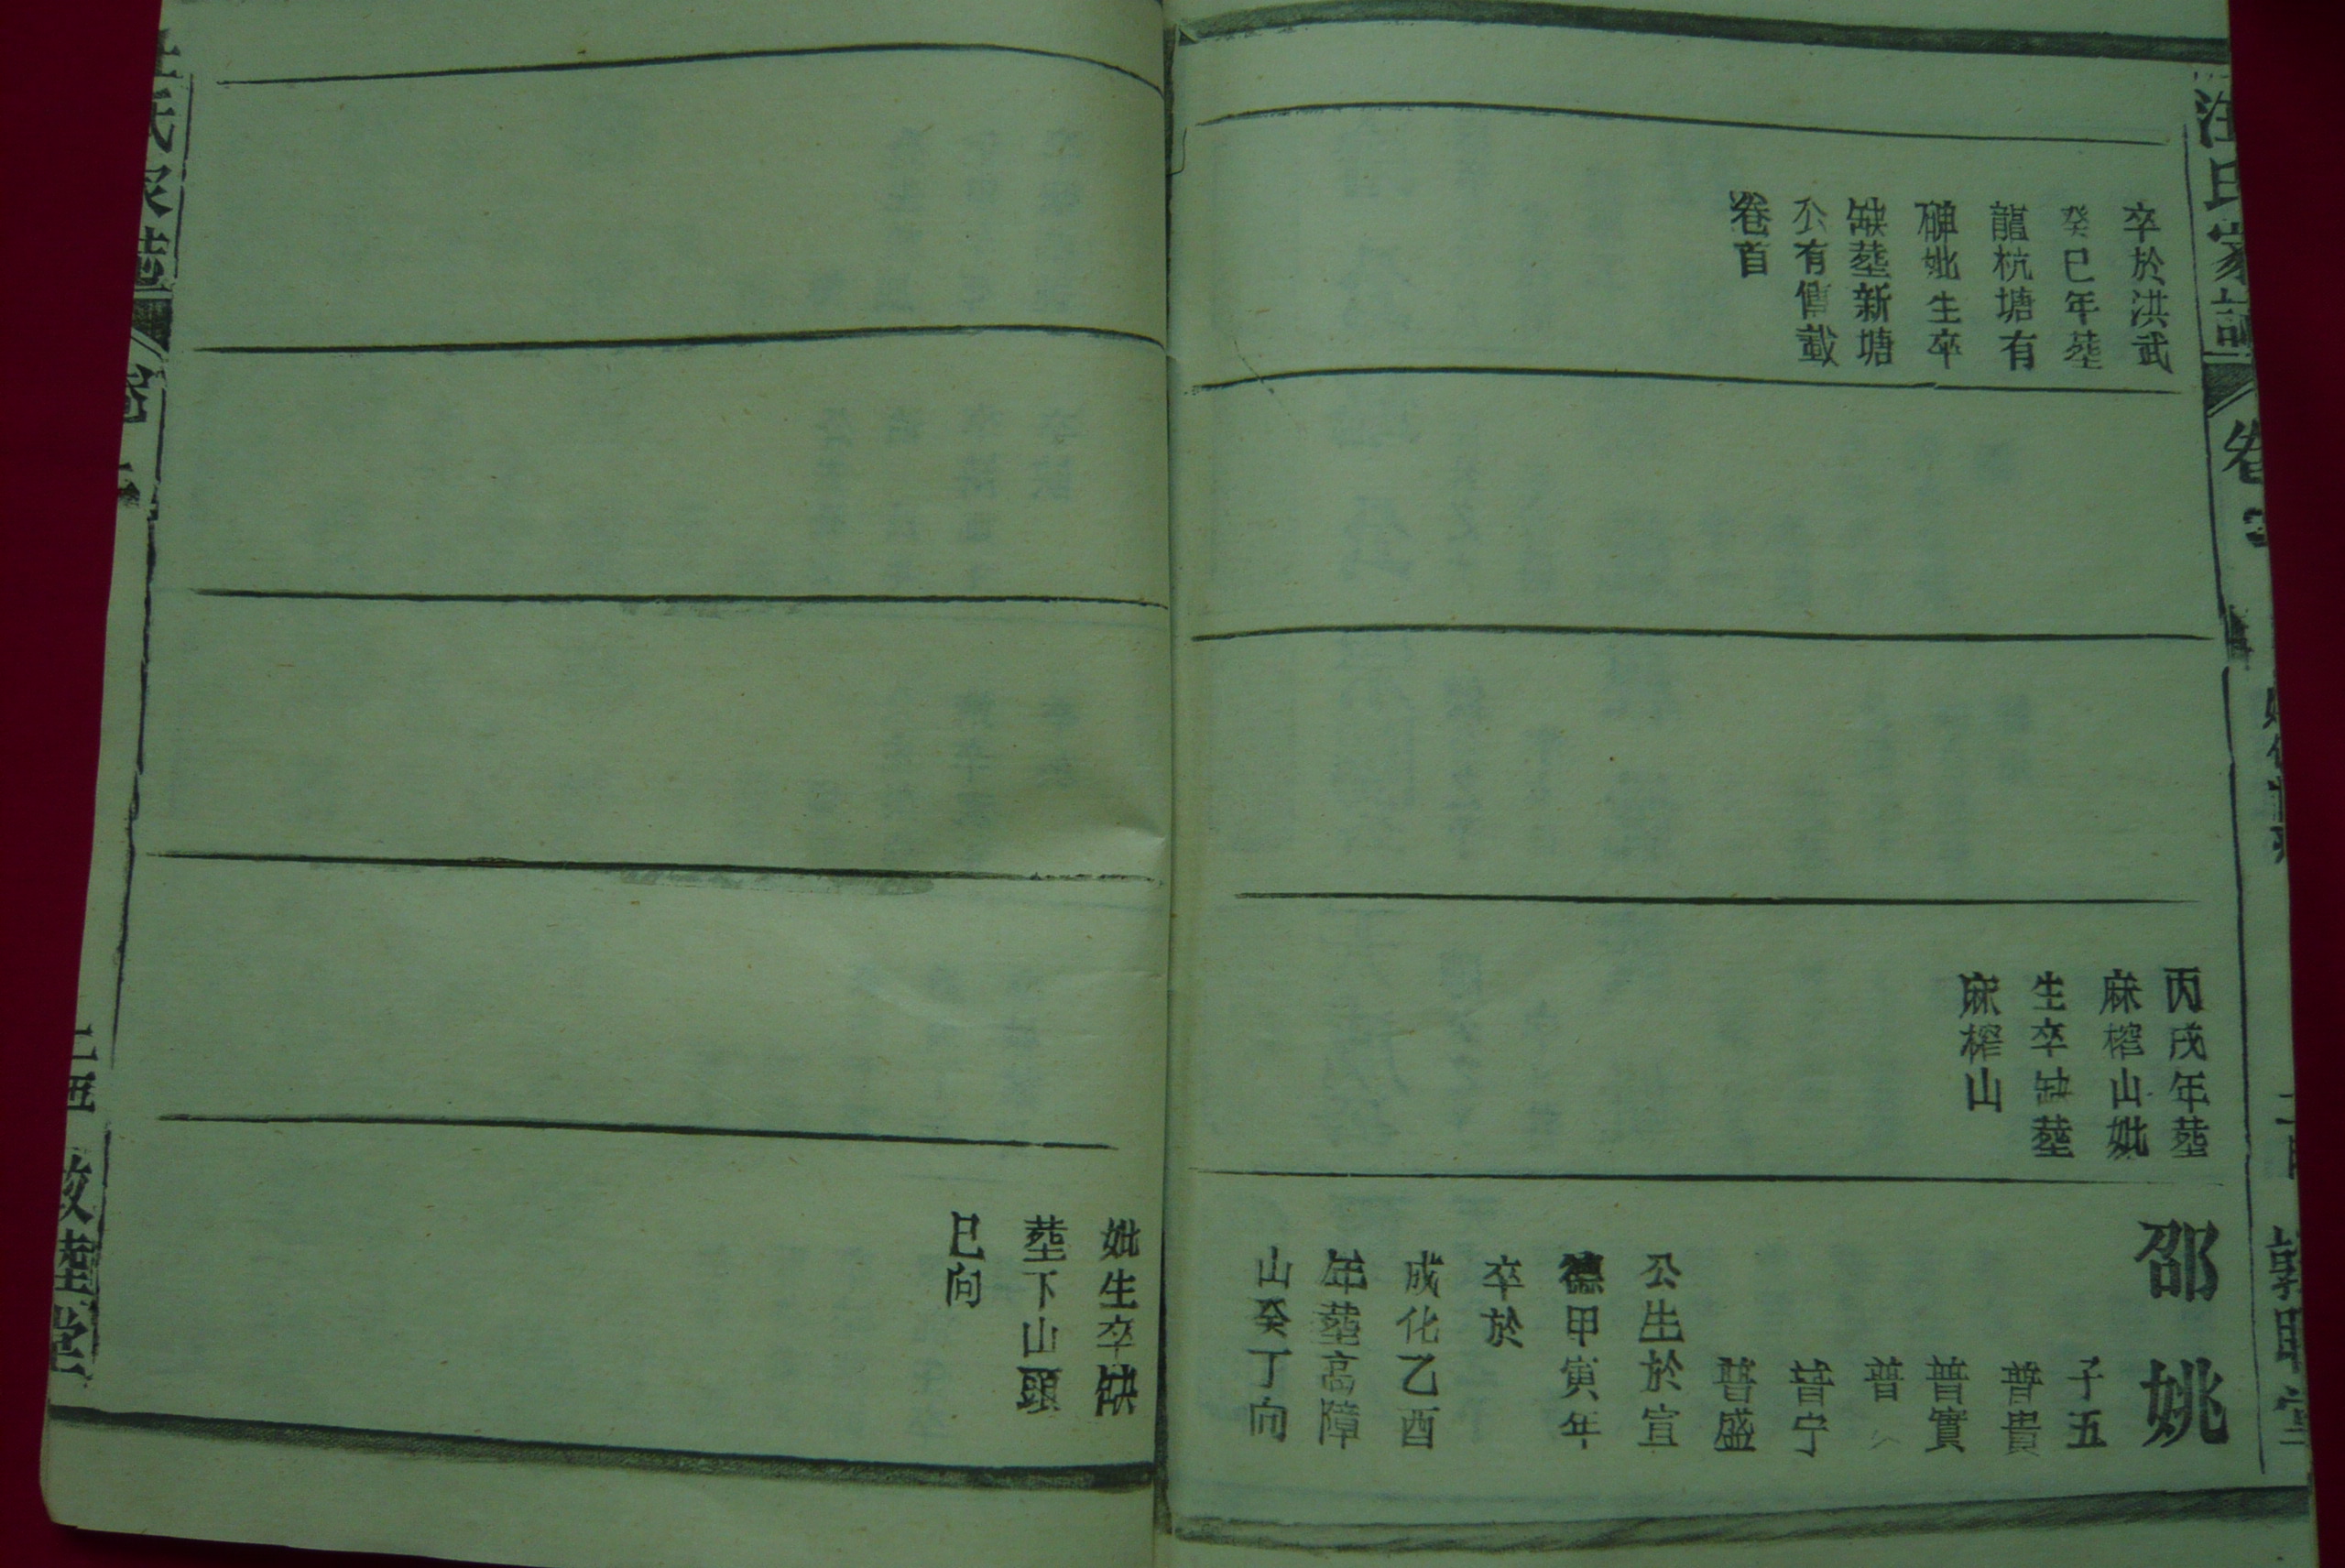 汪氏家譜
卷
卒於洪武
癸巳年塟
龍杭塘有
碑妣生卒
缺塟新塘
公有傳載
卷首
丙戌年塟
麻榨山妣
生卒缺塟
麻榨山
邵姚
子五
普貴
普實
普
普宁
普盛
公生於宣
德甲寅年
卒於
成化乙酉
年塟高障
山癸丁向
妣生卒缺
塟下山頭
巳向
氏家